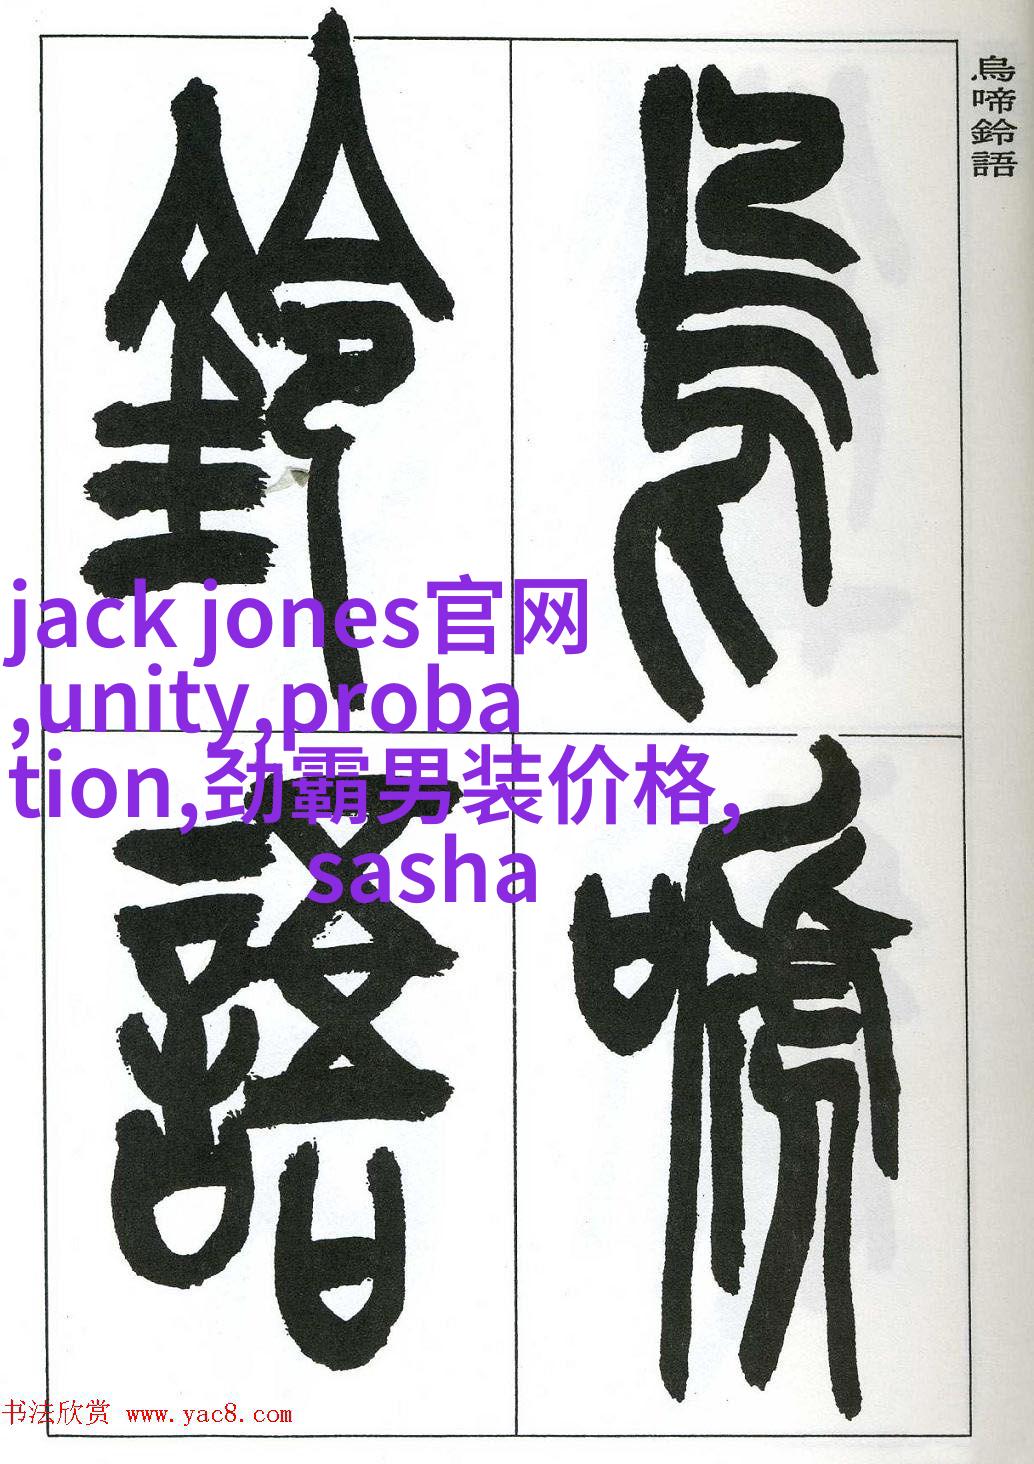 烏啼鈴語
烏啼
鈴語
jack jones官网
,unity,proba
tion,劲霸男装价格,
sasha
书法欣赏 www.yac8.com